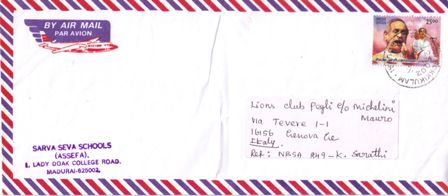 BY AIR MAIL
PAR AVION
25.00
Lions club Pegli c/o Michelini
Mauro
Via Tevere 1-1
16156 Genova Ge
Italy.
Ref: NRSA 249-K. Sarathi
SARVA SEVA SCHOOLS
(ASSEFA),
2, LADY DOAK COLLEGE ROAD,
MADURAI-625002.